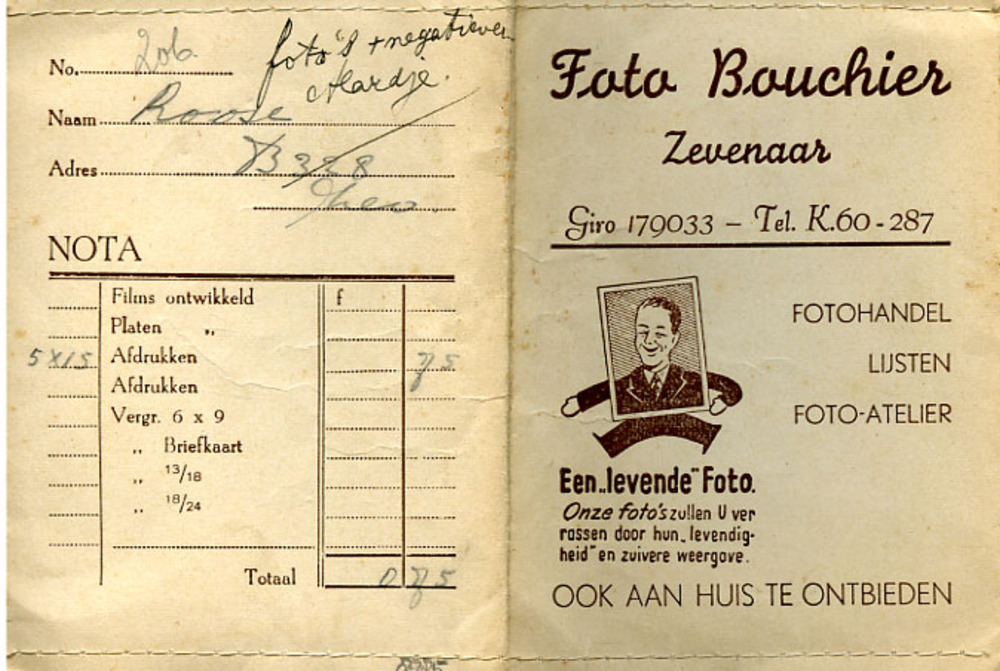 foto's + negatieven
No. 206.
Naam Roose
Adres B 328
Theo.
NOTA
Films ontwikkeld f
Platen „
5 x 15 Afdrukken 75
Afdrukken
Vergr. 6 x 9
„ Briefkaart
„ 13/18
„ 18/24
Totaal 0 75
Foto Bouchier
Zevenaar
Giro 179033 – Tel. K.60-287
FOTOHANDEL
LIJSTEN
FOTO-ATELIER
Een „levende" Foto.
Onze foto's zullen U ver
rassen door hun „levendig-
heid" en zuivere weergave.
OOK AAN HUIS TE ONTBIEDEN